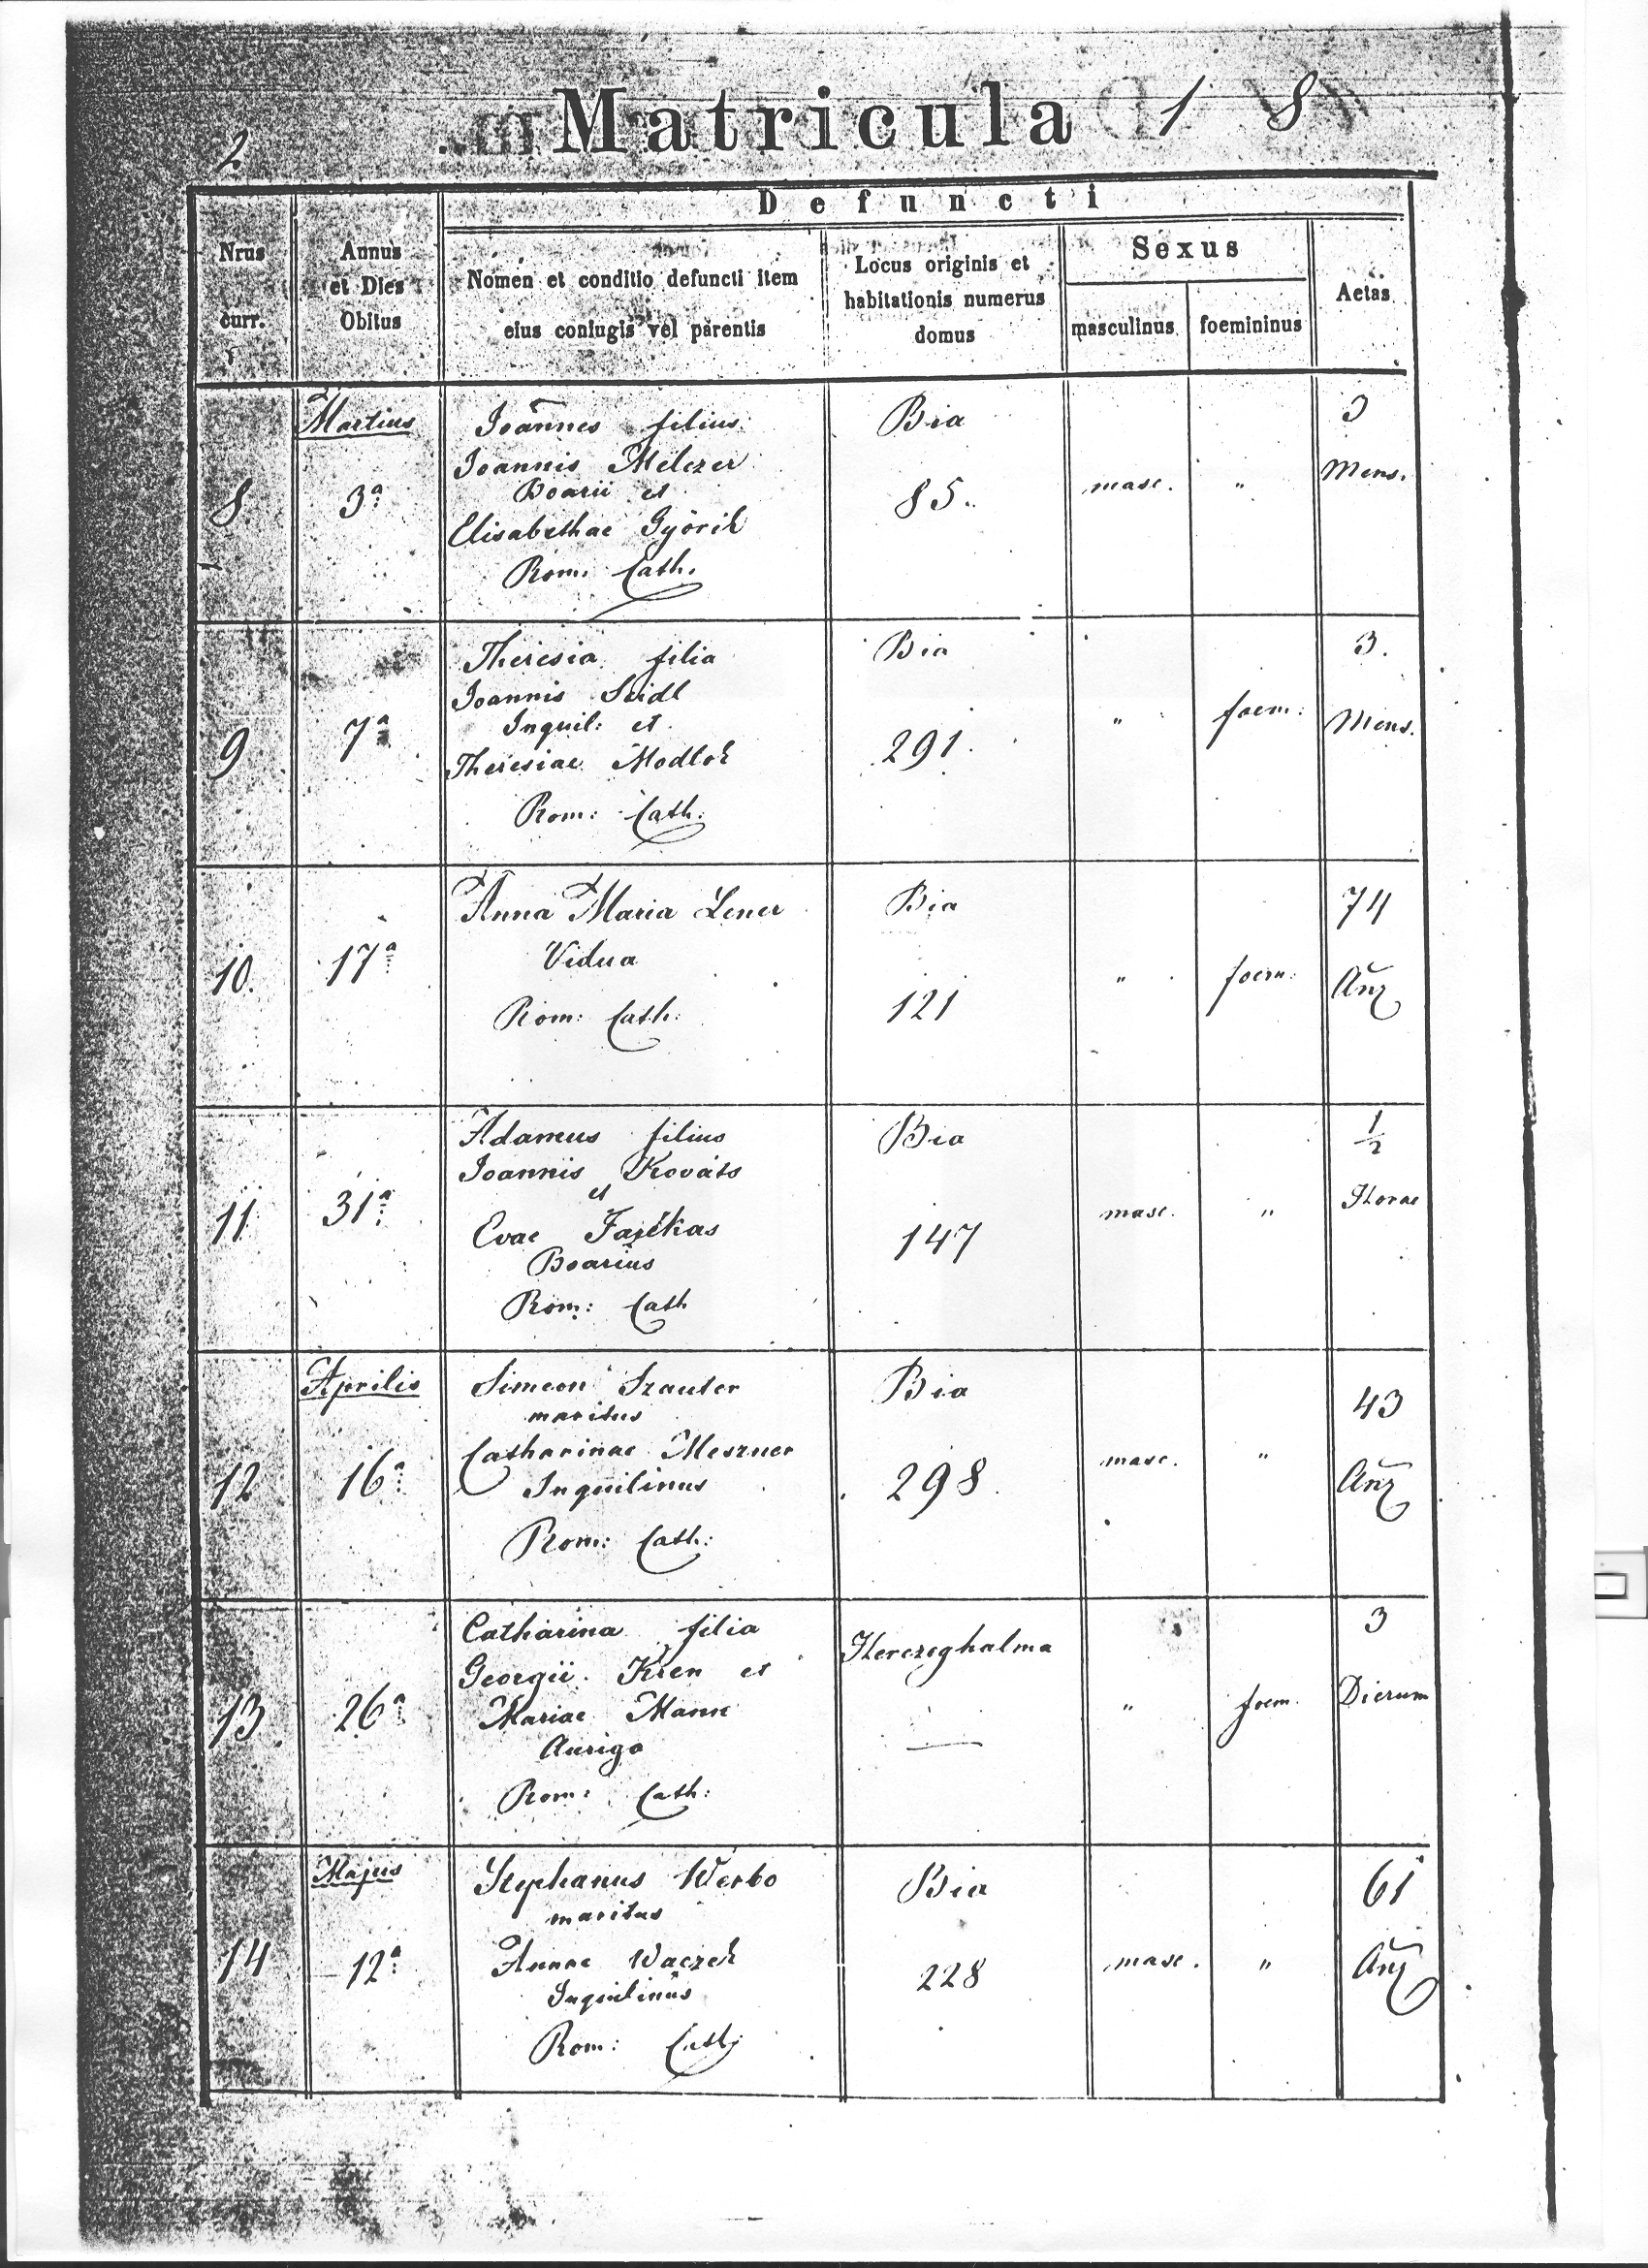 2.
Matricula 1 8
Defuncti
Nrus
curr.
Annus
et Dies
Obitus
Nomen et conditio defuncti item
eius coniugis vel parentis
Locus originis et
habitationis numerus
domus
Sexus
masculinus
foemininus
Aetas
Martius
8
3ª
Joannes filius
Joannis Melczer
Boarii et
Elisabethae Györik
Rom. Cath.
Bia
85.
masc.
"
3
Mens.
9
7ª
Theresia filia
Joannis Seidl
Inquil: et
Theresiae Modlok
Rom: Cath:
Bia
291.
"
foem:
3.
Mens.
10.
17ª
Anna Maria Lener
Vidua
Rom: Cath:
Bia
121
"
foem:
74
Añ
11
31ª
Adamus filius
Joannis Kováts
et
Evae Fazékas
Boarius
Rom: Cath
Bia
147
masc.
"
1/2
Horae
Aprilis
12
16ª
Simeon Szauter
maritus
Catharinae Meszner
Inquilinus
Rom: Cath:
Bia
298.
masc.
"
43
Añ
13
26ª
Catharina filia
Georgii Kren et
Mariae Mann
Auriga
Rom: Cath:
Herczeghalma
—
"
foem.
3
Dierum
Majus
14
12ª
Stephanus Werbo
maritus
Annae Waczek
Inquilinus
Rom: Cath:
Bia
228
masc.
"
61
Añ